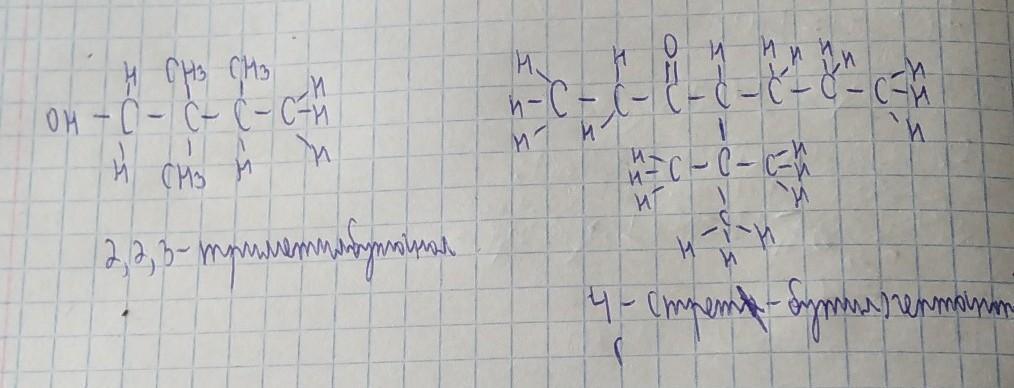 H CH3 CH3 H
OH - C - C - C - C - H
H CH3 H H
2,2,3-триметилбутанол
H H O H H H H H H
H - C - C - C - C - C - C - C - H
H H H
H - C - C - C - H
H H
H - C - H
H
4-(трет-бутил)гептанон